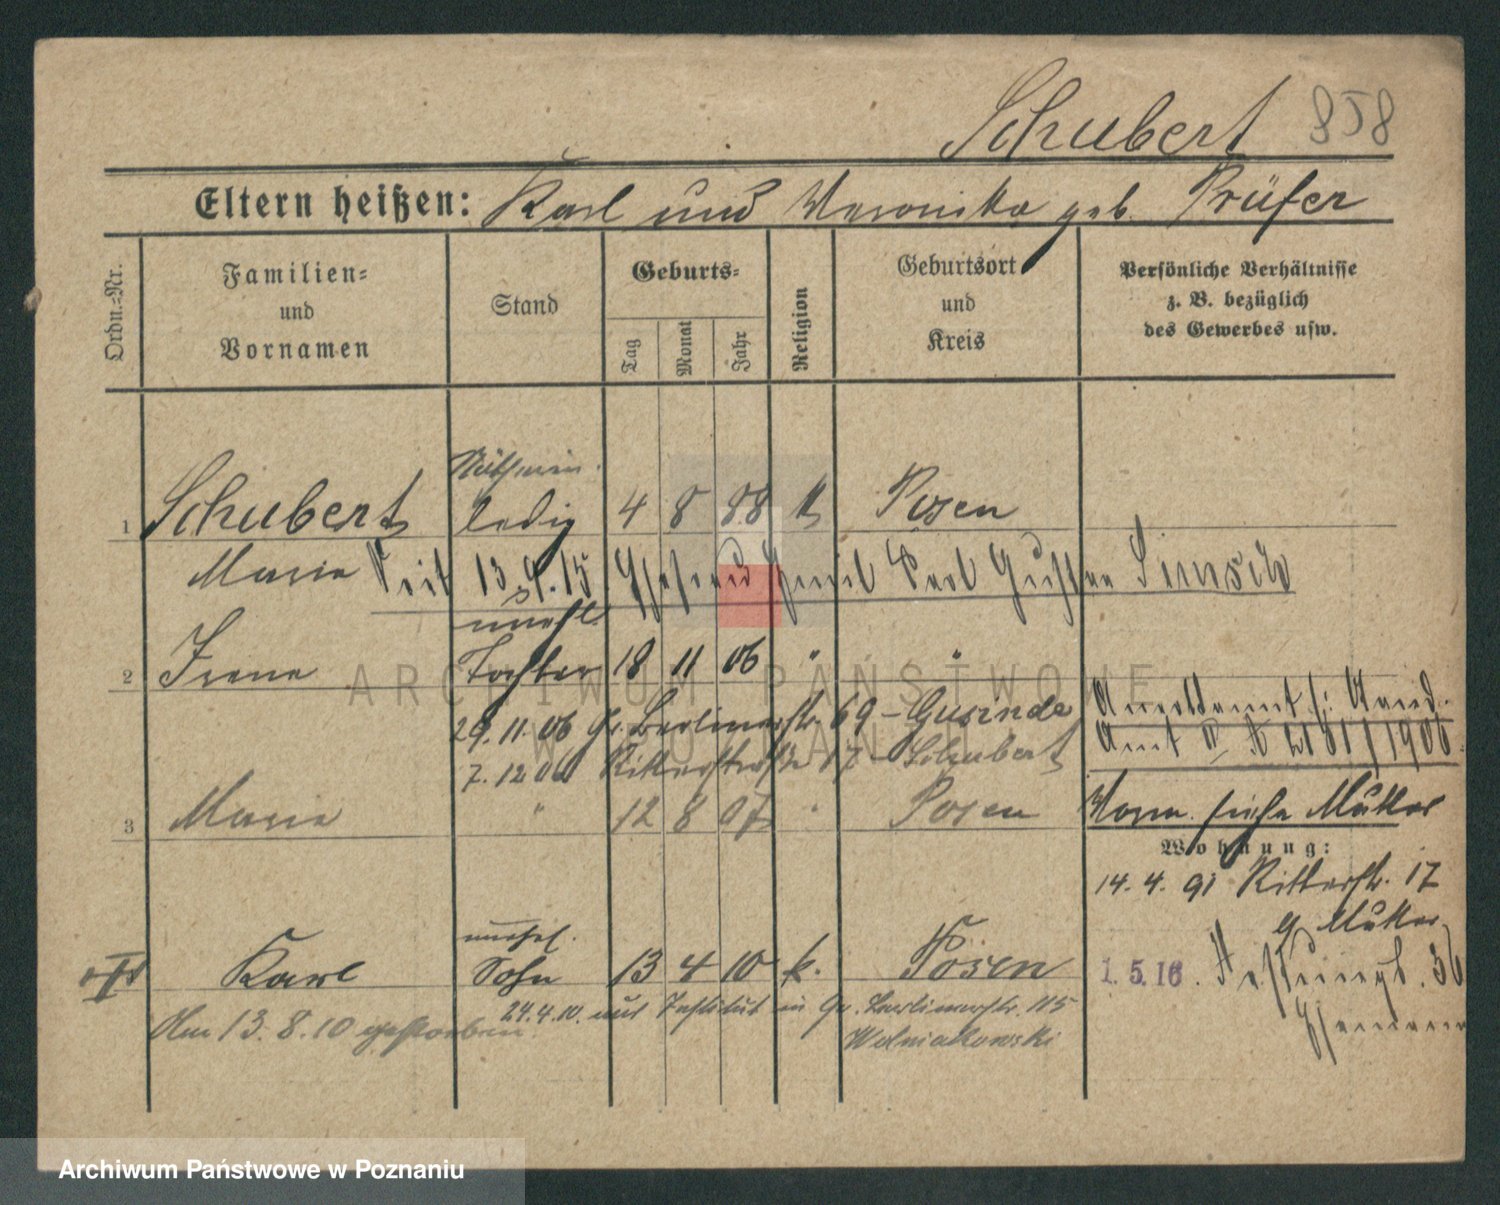 Schubert 858
Eltern heißen: Karl und Veronika geb. Prüfer
Ordn.=Nr.
Familien=
und
Vornamen
Stand
Geburts=
Tag
Monat
Jahr
Religion
Geburtsort
und
Kreis
Persönliche Verhältnisse
z. B. bezüglich
des Gewerbes usw.
Näherin.
1 Schubert ledig 4 8 88 k Posen
Maria Seit 13.9.15 Ehefrau Emil Karl Gustav
unehl.
2 Irene Tochter 18 11 06 " "
29.11.06 Gr. Berlinerstr. 69 - Gusinde
7.12.06 Ritterstraße 17 - Schubert
Anerkannt
Amt 1906.
3 Maria " 12 8 07 " Posen
Worn. siehe Mutter
Wohnung:
14.4.91 Ritterstr. 17
Mutter
unehel.
Karl Sohn 13 4 10 k. Posen
1.5.16. 36
Ehemann
24.4.10. aus Institut in Gr. Berlinerstr. 115
Am 13.8.10 gestorben.
Wolniakowski
ARCHIWUM PAŃSTWOWE
W POZNANIU
Archiwum Państwowe w Poznaniu